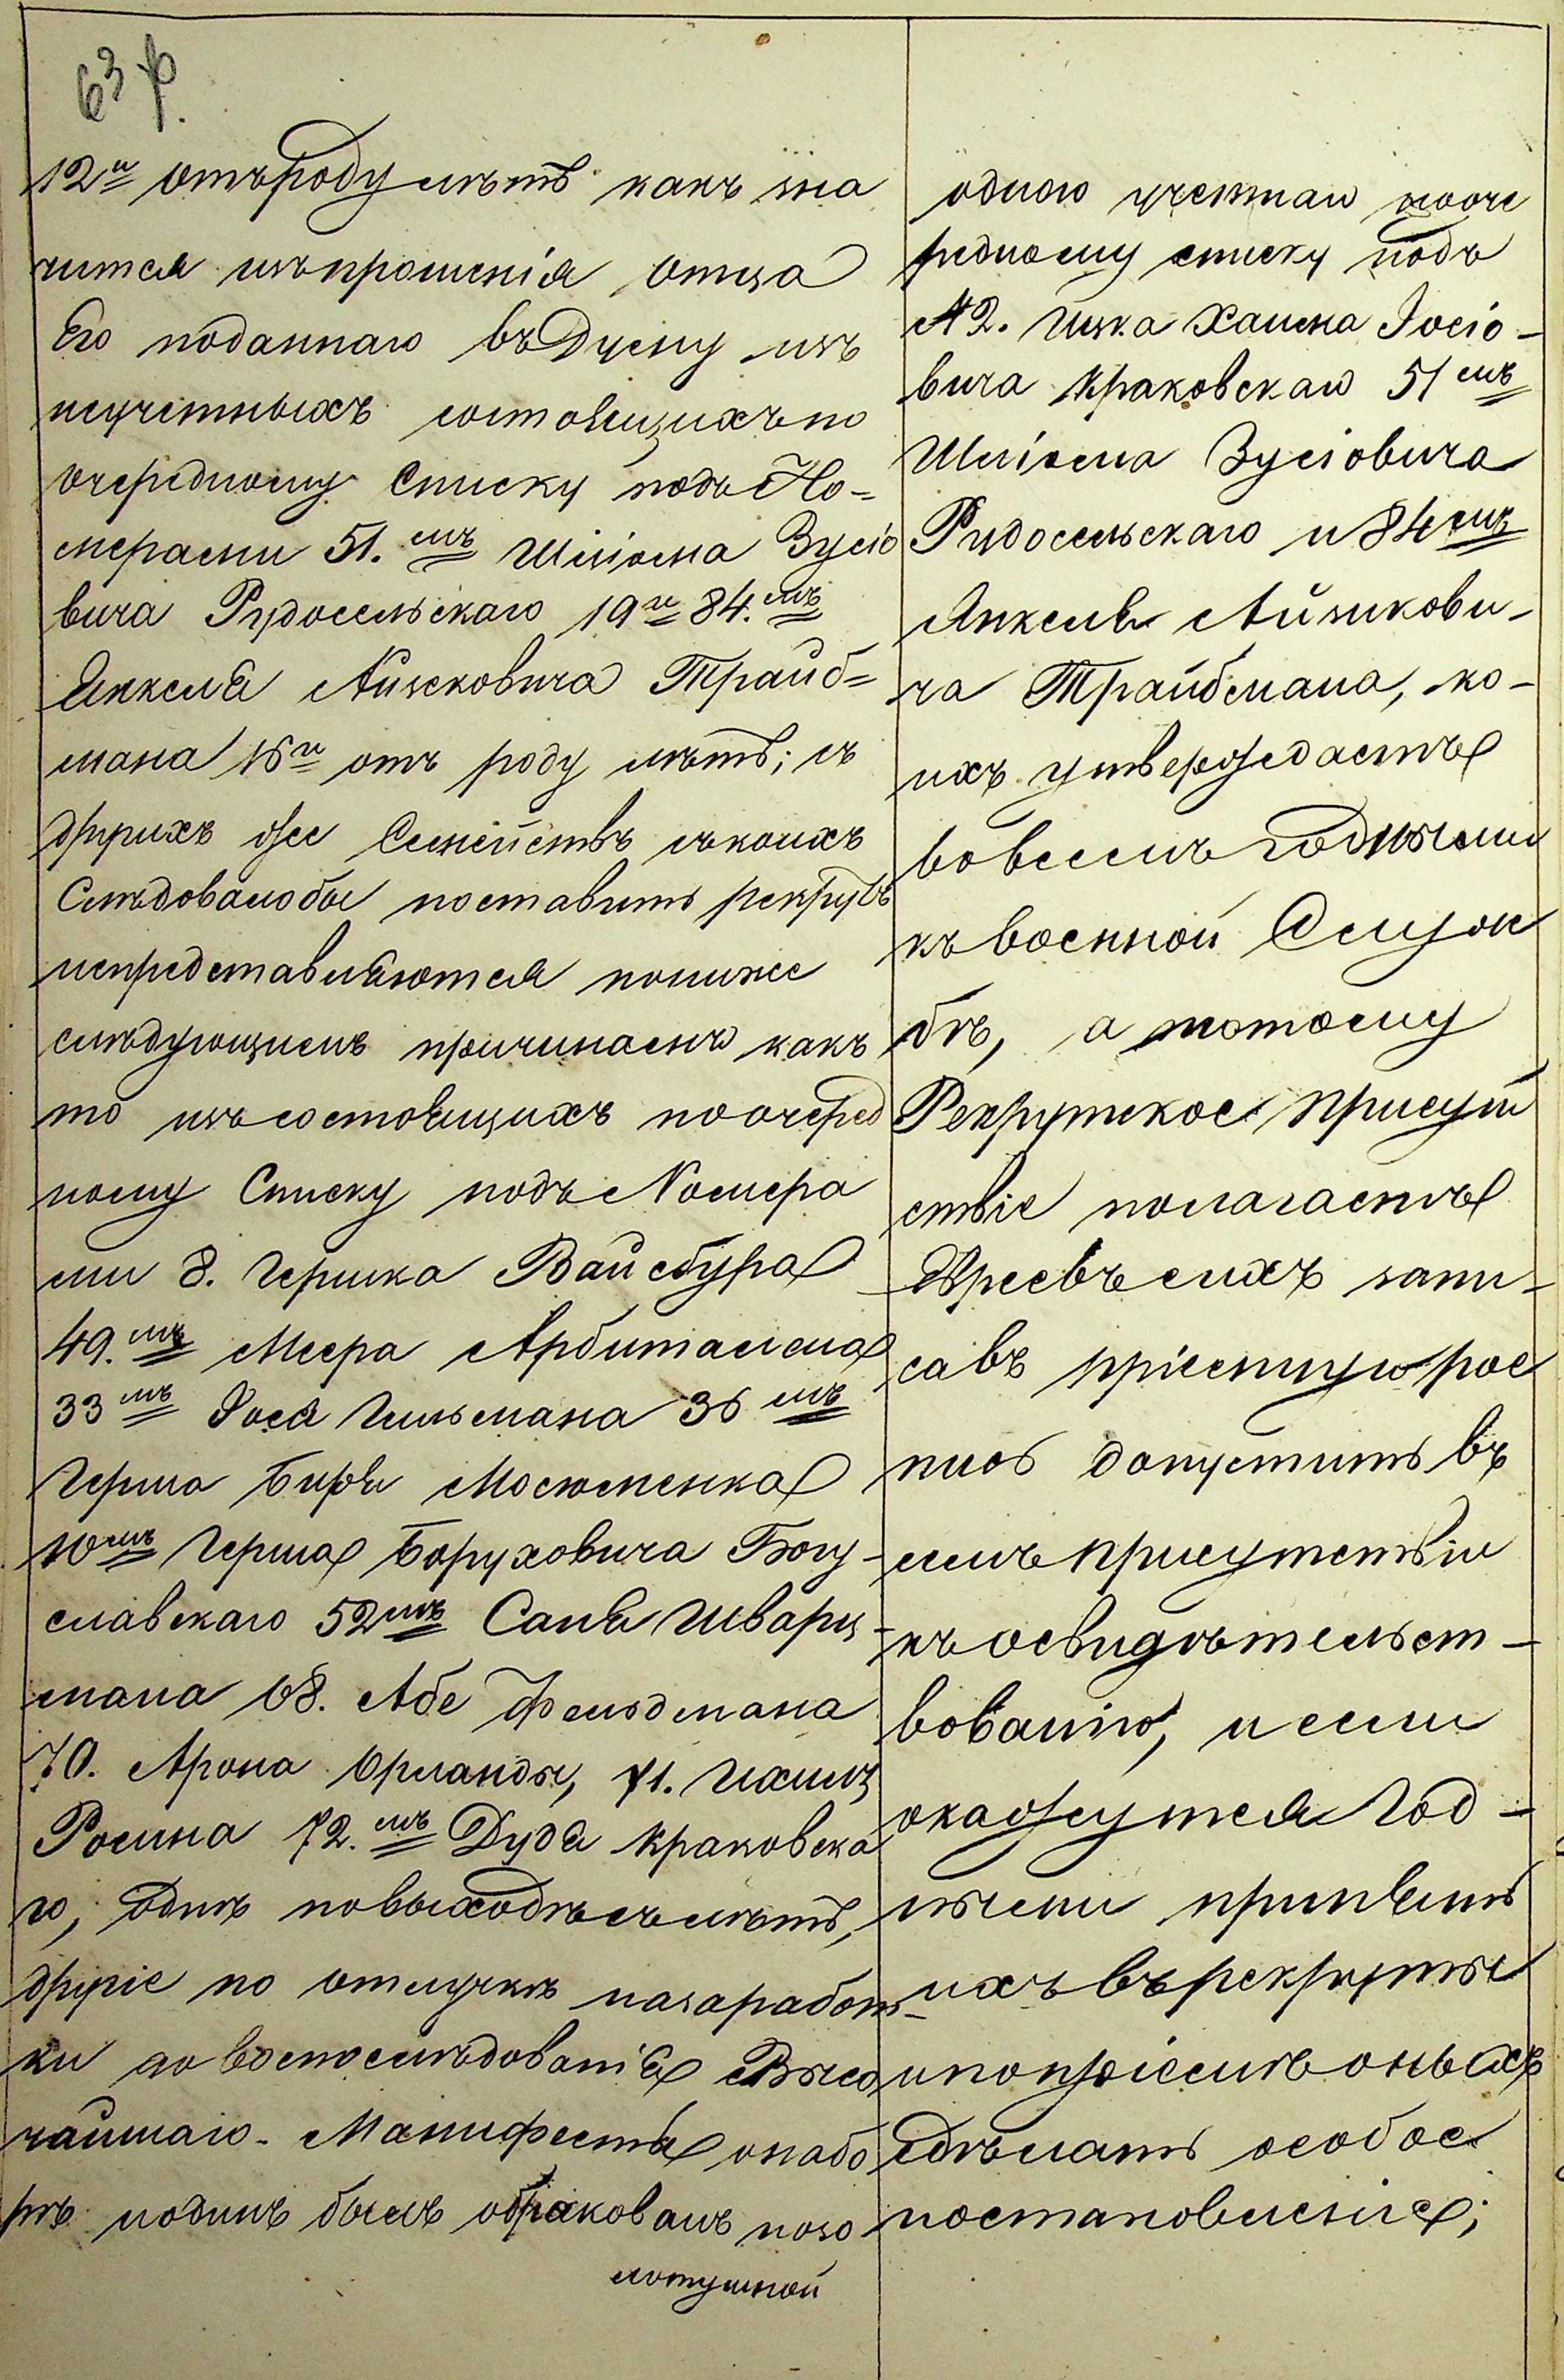 63 ф.
12и отъ роду лѣтъ какъ зна
чится изъ прошенія отца
Его поданнаго въ Думу изъ
неучетныхъ состоящихъ по
очередному Списку подъ Но=
мерами 51.мъ Шліома Зусіо
вича Рудосельскаго 19 и 84.мъ
Янкеля Айзековича Трайб=
мана 16и отъ роду лѣтъ; съ
другихъ же Семействъ съ коихъ
Слѣдовало бы поставить рекрутъ
непредставляются пониже
слѣдующимъ причинамъ какъ
то изъ состоящихъ по очеред
ному Списку подъ Номера
ми 8. Гершка Вайсбура
49.мъ Меера Арбитамана
33мъ Іося Гильмана 36мъ
Герша Бира Мосюменка
10мъ Герша Боруховича Богу-
славскаго 52мъ Саня Шварц-
мана 68. Абе Фельдмана
70. Арона Орланды, 71. Ихиля
Росина 72.мъ Дудя Краковска
го, однѣ по выходѣ съ лѣтъ,
другіе по отлучкѣ на заработ-
ки до воспослѣдованія Высо
чайшаго Манифеста о набо
рѣ и одинъ былъ обракованъ по зо
лотушной
одного учетнаго по оче
редному списку подъ
№ 2. Ицка Хаима Іосіо-
вича Краковскаго 51мъ
Шліома Зусіовича
Рудосельскаго и 84мъ
Янкеля Айзикови-
ча Трайбмана, ко-
ихъ утверждаетъ
во всемъ годными
къ военной Служ
бѣ, а потому
Рекрутское Присут
ствіе полагаетъ
Евреевъ сихъ запи-
савъ пріемную рос
пись допустить въ
семъ присутствіи
къ освидѣтельст-
вованію, и если
окажутся год-
ными принять
ихъ въ рекруты
и по пріемѣ оныхъ
сдѣлать особое
постановленіе;